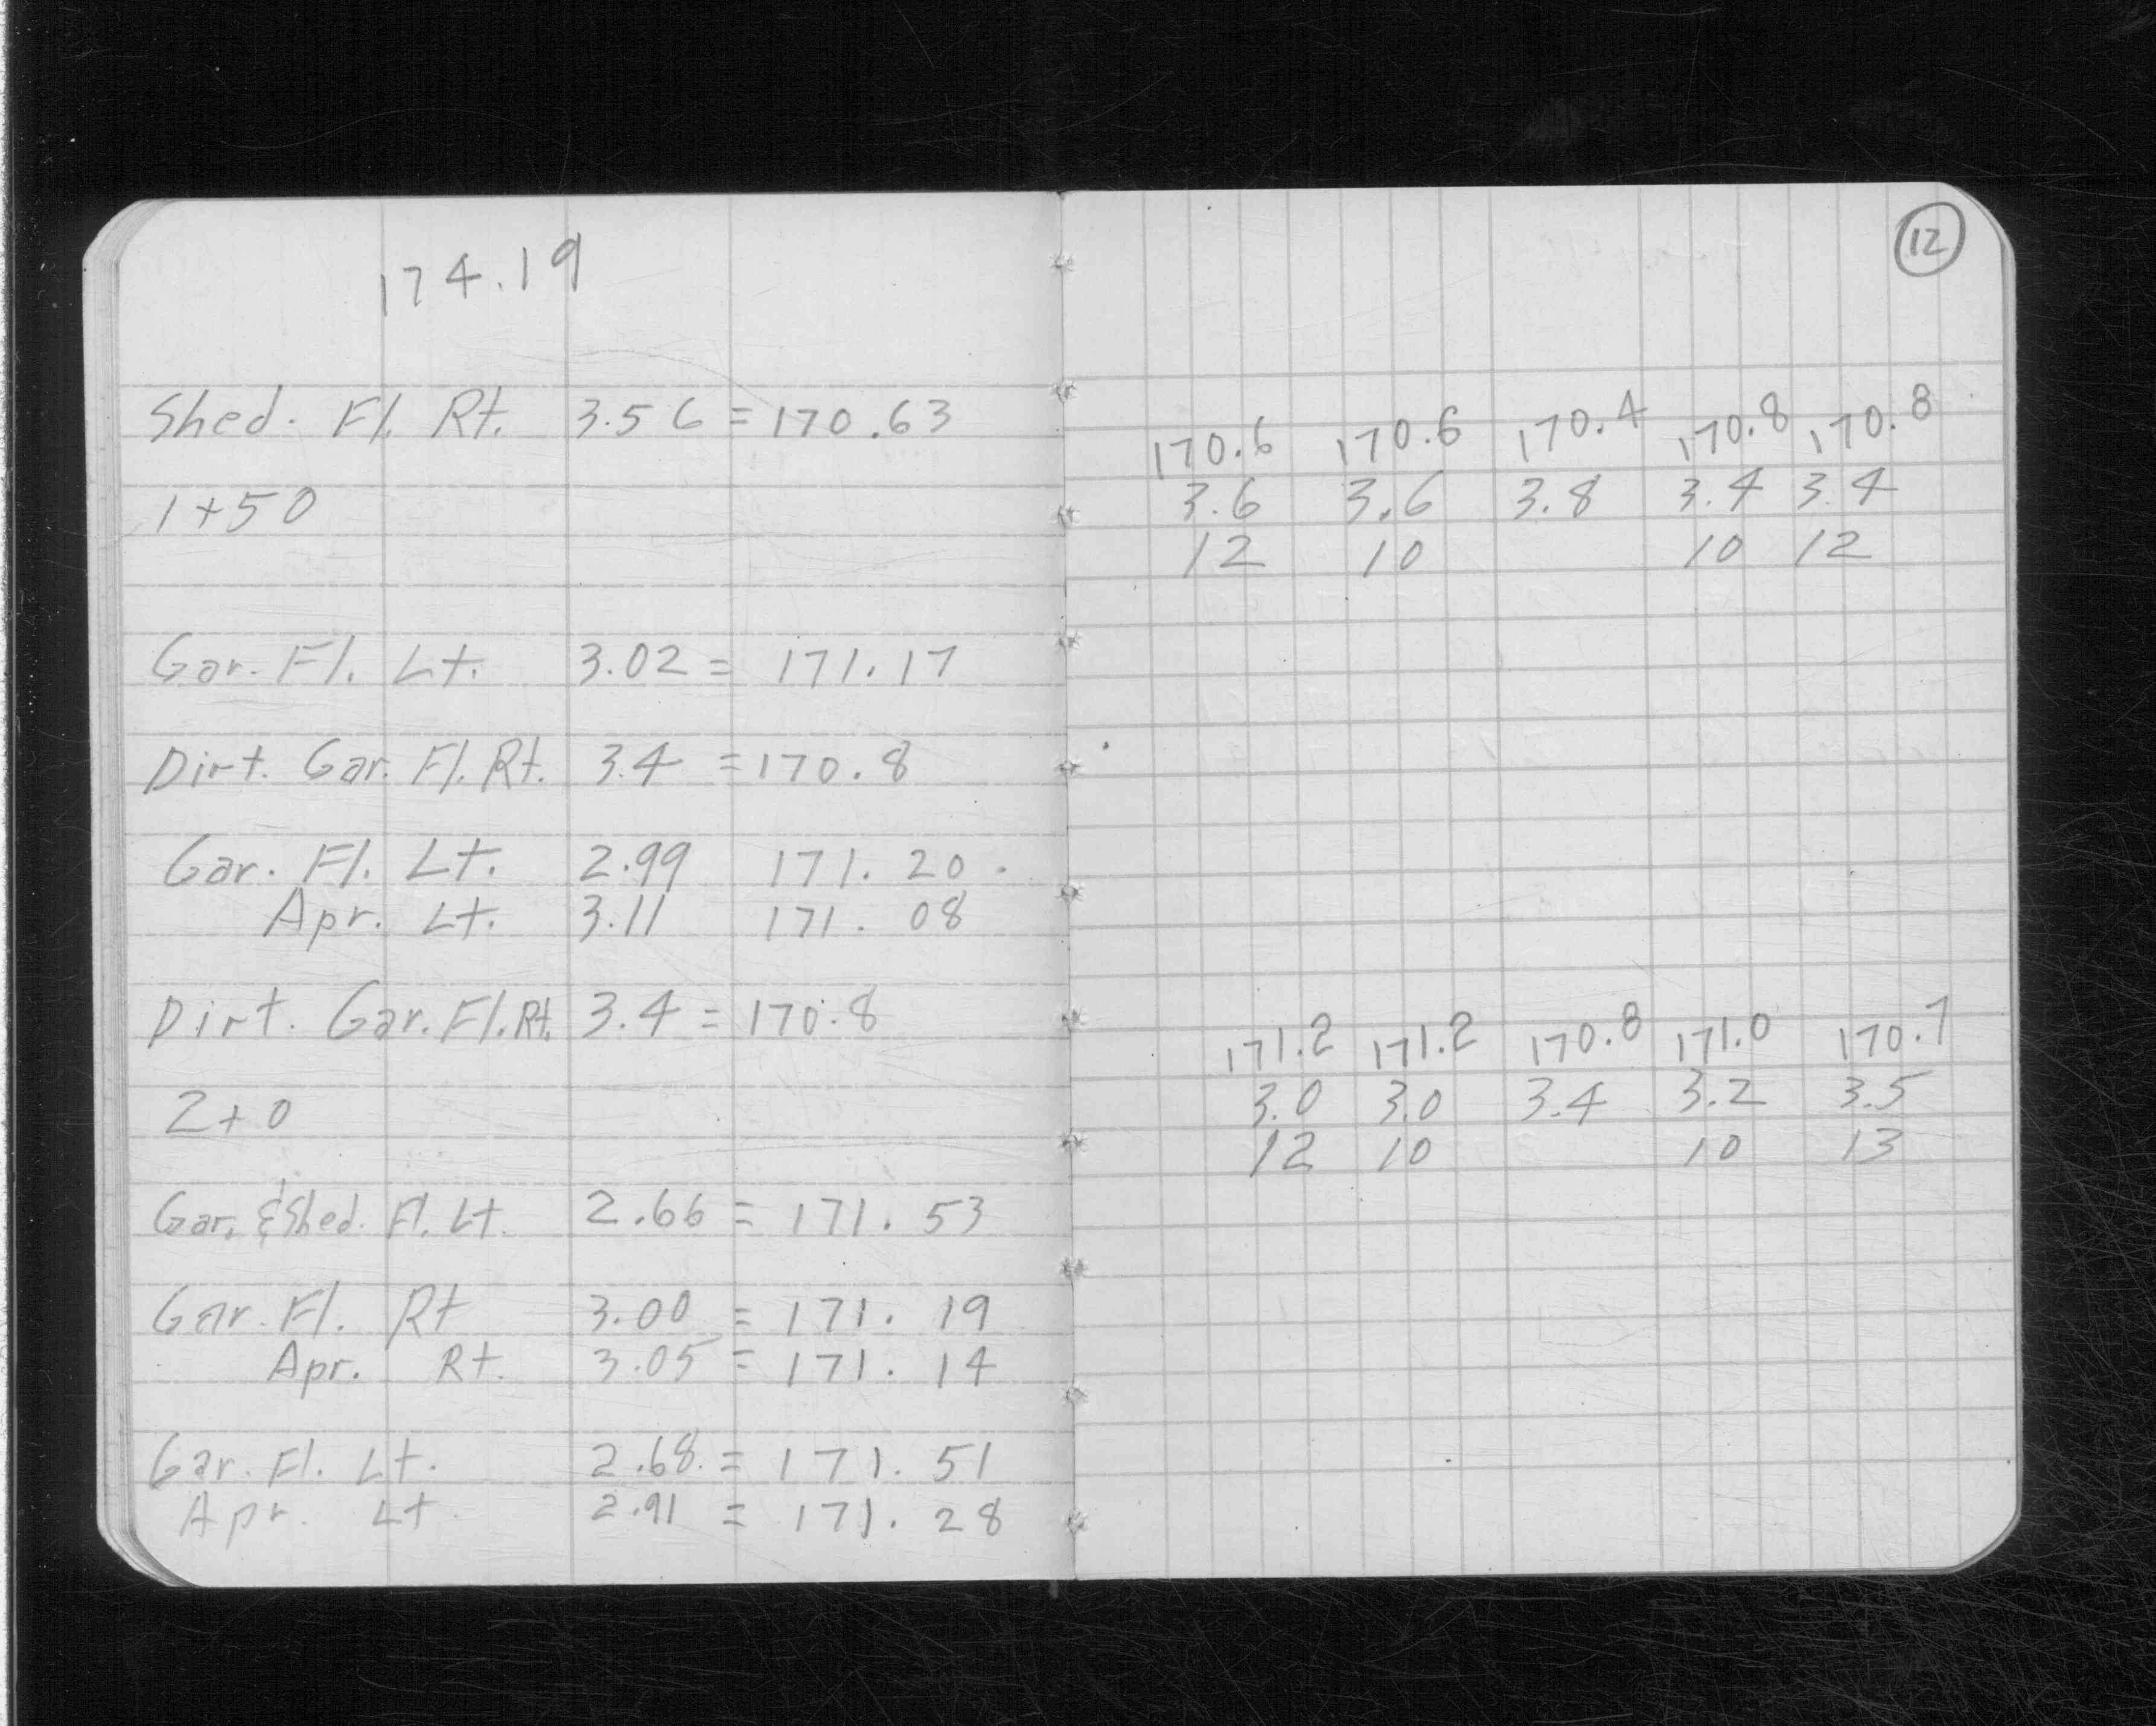 174.19
Shed. Fl. Rt. 3.56 = 170.63
1+50
Gar. Fl. Lt. 3.02 = 171.17
Dirt. Gar. Fl. Rt. 3.4 = 170.8
Gar. Fl. Lt. 2.99 171.20
Apr. Lt. 3.11 171.08
Dirt. Gar. Fl. Rt. 3.4 = 170.8
2+0
Gar. & Shed. Fl. Lt. 2.66 = 171.53
Gar. Fl. Rt 3.00 = 171.19
Apr. Rt. 3.05 = 171.14
Gar. Fl. Lt. 2.68 = 171.51
Apr. Lt. 2.91 = 171.28
12
170.6 170.6 170.4 170.8 170.8
3.6 3.6 3.8 3.4 3.4
12 10 10 12
171.2 171.2 170.8 171.0 170.7
3.0 3.0 3.4 3.2 3.5
12 10 10 13